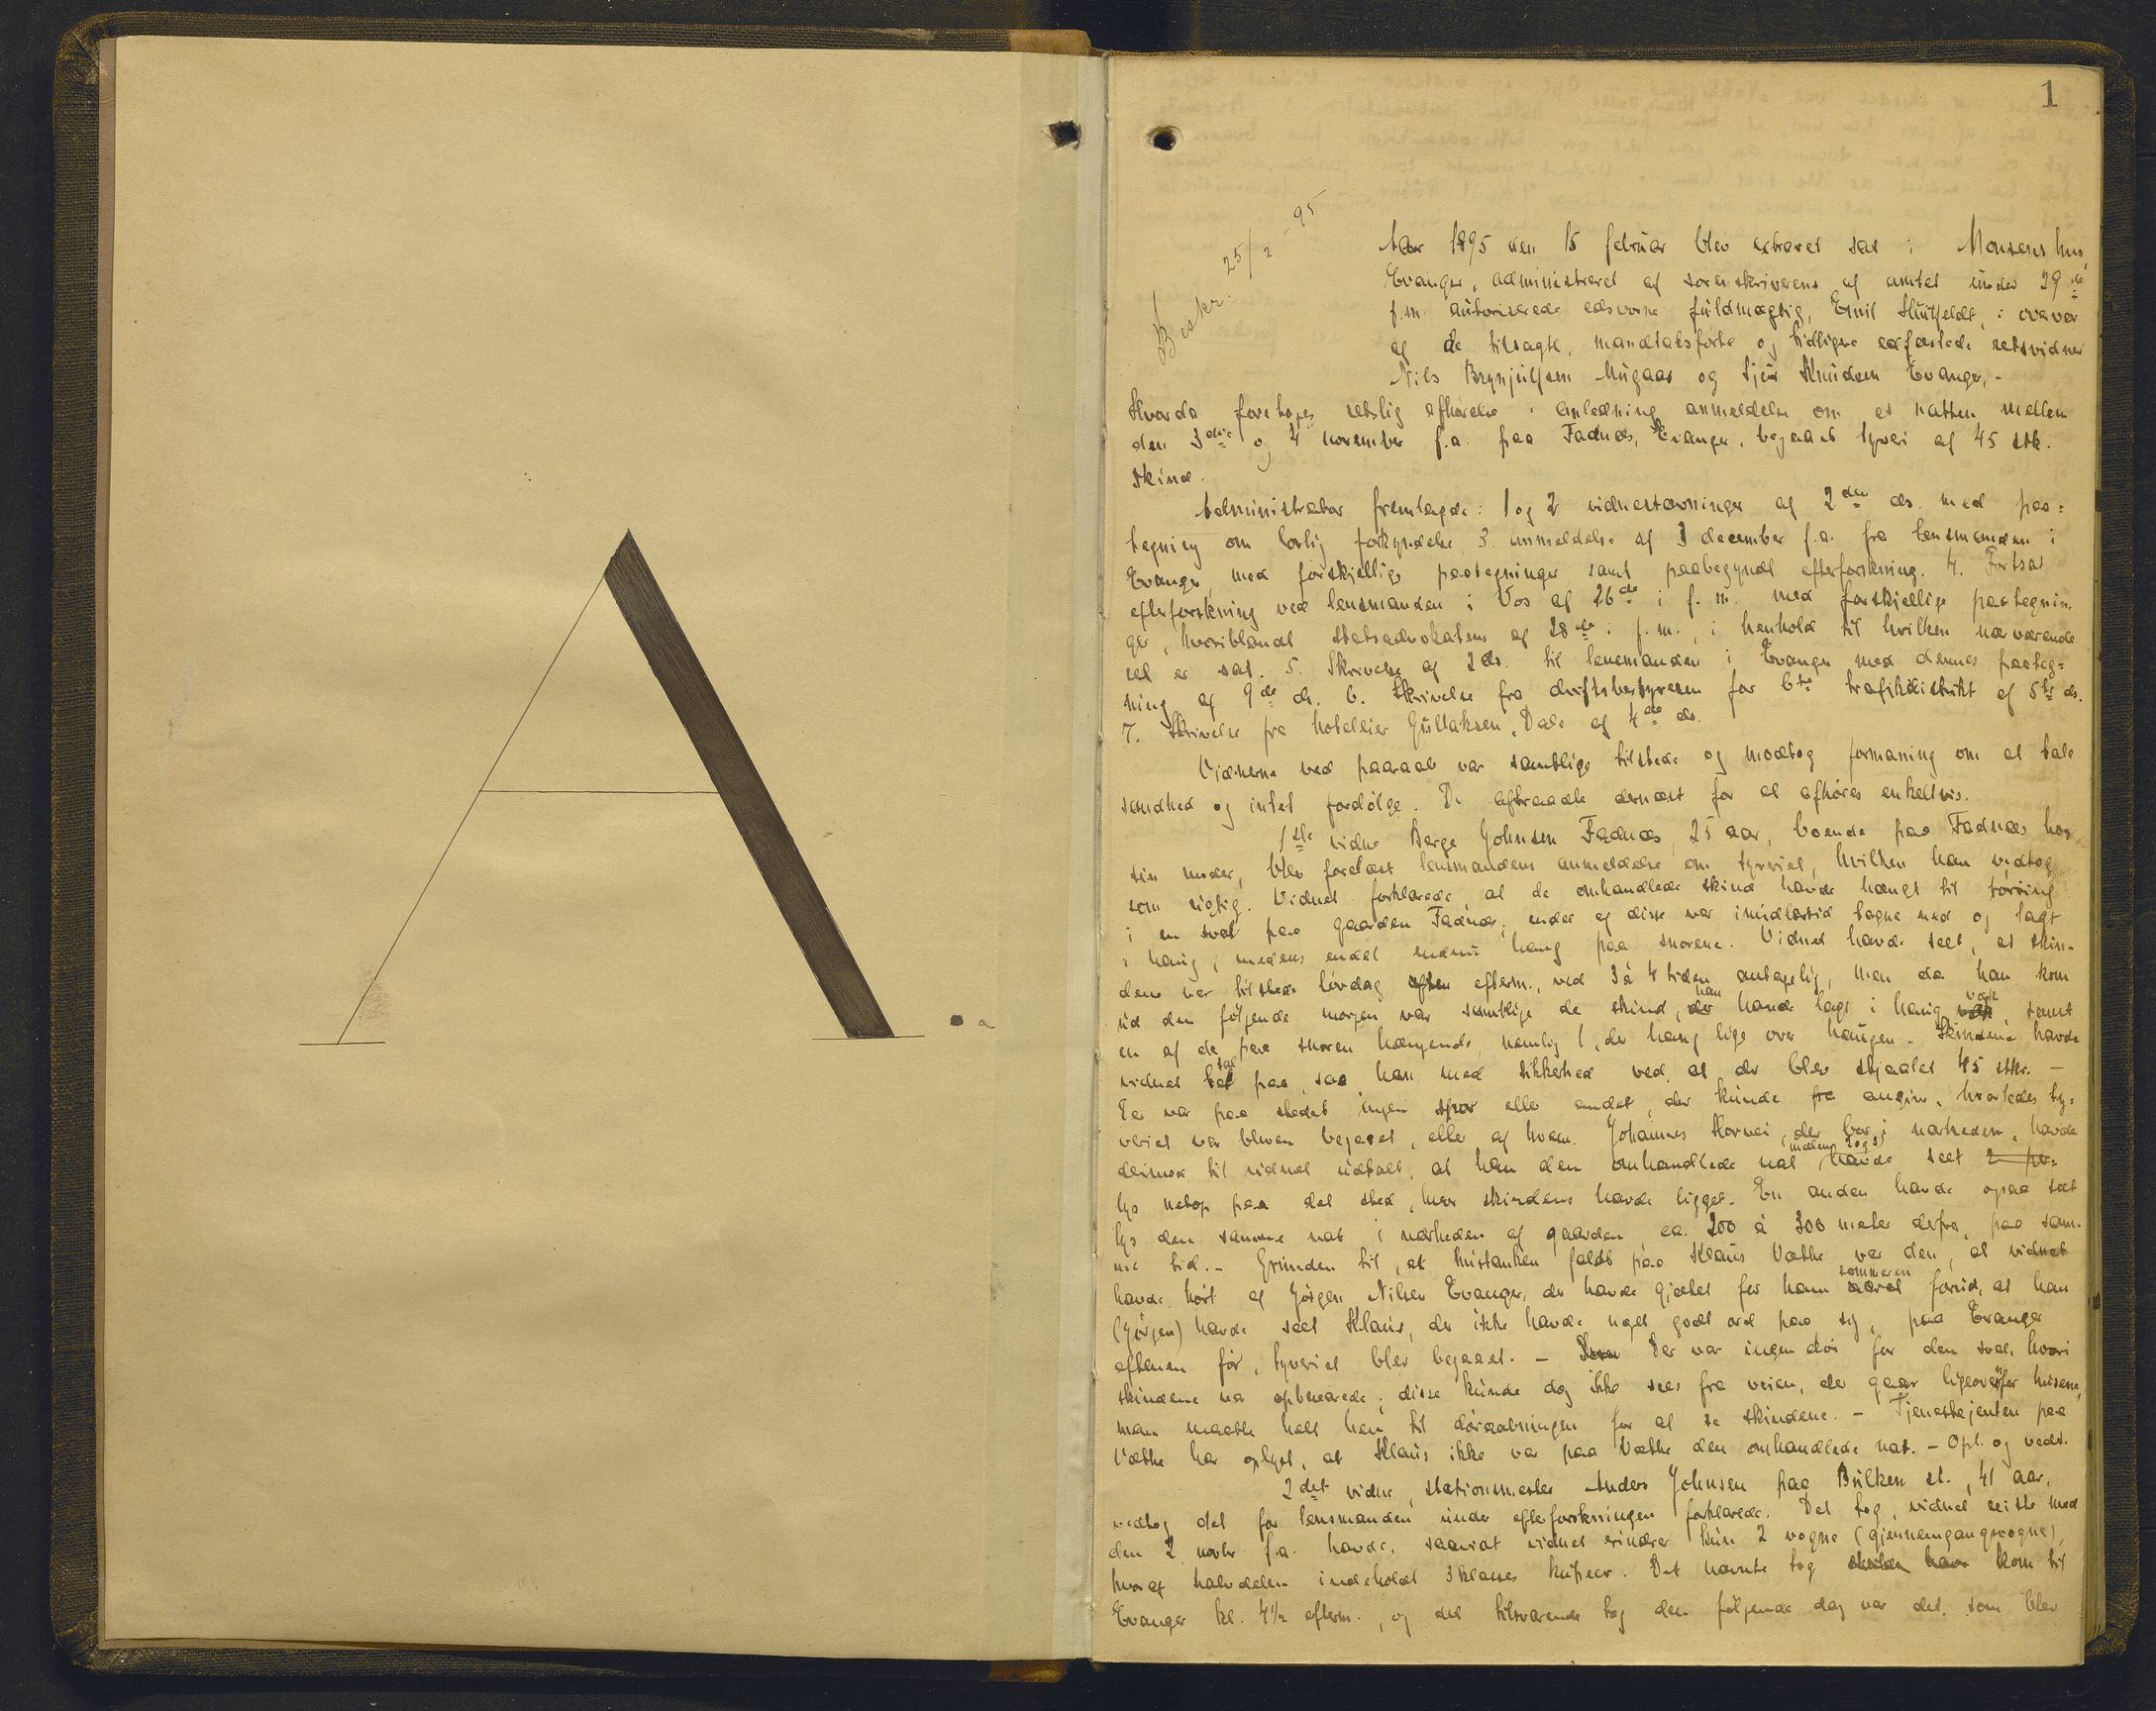 A
1
Beskr. 25/2 - 95
Aar 1895 den 15 februar blev extraret sat i Monsens hus,
Evanger, administreret af sorenskriverens af amtet under 29de
f.m. autoriserede edsvorne fuldmægtig, Emil Huitfeldt, i overvær
af de tilsagte, mandtalsførte og tidligere edfæstede retsvidner
Nils Brynjulfsen Mugaas og Sjur Knudsen Evanger, -
Hvorda foretoges retslig afhørelse i anledning anmeldelse om et natten mellem
den 3die og 4 november f.a. paa Fadnæs, Evanger, begaaet tyveri af 45 stk.
skind.
Administrator fremlagde: 1 og 2 vidnestævninger af 2den ds. med paa=
tegning om lovlig forkyndelse 3. anmeldelse af 3 december f.a. fra lensmanden i
Evanger med forskjellige paategninger samt paabegyndt efterforskning. 4. Fortsat
efterforskning ved lensmanden i Vos af 26de i f.m. med forskjellige paategnin-
ger, hvoriblandt statsadvokatens af 28de i f.m., i henhold til hvilken nærværende
ret er sat. 5. Skrivelse af 2 ds. til lensmanden i Evanger med dennes paateg=
ning af 9de ds. 6. Skrivelse fra driftsbestyreren for 6te trafikdistrikt af 5te ds.
7. Skrivelse fra hotellier Gullaksen, Dale af 4de ds.
Vidnerne ved paaraab var samtlige tilstede og modtog formaning om at tale
sandhed og intet fordølge. De aftraadte dernæst for at afhøres enkeltvis.
1ste vidne Børge Johnsen Fadnæs, 25 aar, boende paa Fadnæs hos
sin moder, blev forelæst lensmandens anmeldelse om tyveriet, hvilken han vedtog
som rigtig. Vidnet forklarede, at de omhandlede skind havde hængt til tørring
i en sval paa gaarden Fadnæs; endel af disse var imidlertid tagne ned og lagt
i haug, medens endel endnu hang paa snorene. Vidnet havde seet, at skin-
dene var tilstede lørdag aften efterm., ved 3 à 4 tiden antagelig, men da han kom
ud den følgende morgen var samtlige de skind, der han havde lagt i haug, væk, samt
en af de paa snoren hængende, nemlig 1, der hang lige over haugen. Skindene havde
vidnet tal paa, saa han med sikkerhed ved, at der blev stjaalet 45 stkr. -
Der var paa stedet ingen spor eller andet, der kunde fra angive, hvorledes ty-
veriet var bleven begaaet, eller af hvem. Johannes Horvei, der bor i nærheden, havde
derimod til vidnet udtalt, at han den omhandlede nat havde seet
lys netop paa det sted, hvor skindene havde ligget. En anden havde ogsaa seet
lys den samme nat i nærheden af gaarden, ca. 200 à 300 meter derfra, paa sam-
me tid. - Grunden til, at mistanken faldt paa Klaus Væthe var den, at vidnet
havde hørt af Jørgen Nilsen Evanger, der havde gjætet for ham aaret sommeren forud, at han
(Jørgen) havde seet Klaus, der ikke havde noget godt ord paa sig, paa Evanger
aftenen før, tyveriet blev begaaet. - Der var ingen dør for den sval, hvori
skindene var opbevarede; disse kunde dog ikke sees fra veien, der gaar ligeoverfor husene,
man maatte helt hen til døraabningen for at se skindene. - Tjenestejenten paa
Væthe har oplyst, at Klaus ikke var paa Væthe den omhandlede nat. - Opl. og vedt.
2det vidne, stationsmester Anders Johnsen paa Bulken st., 41 aar,
vedtog det for lensmanden under efterforskningen forklarede. Det tog, vidnet reiste med
den 2 novbr f.a. havde, saavidt vidnet erindrer kun 2 vogne (gjennemgangsvogne),
hvoraf halvdelen indeholdt 3 klasses kupeer. Det nævnte tog kom til
Evanger kl. 4½ efterm., og det tilsvarende tog den følgende dag var det, som blev